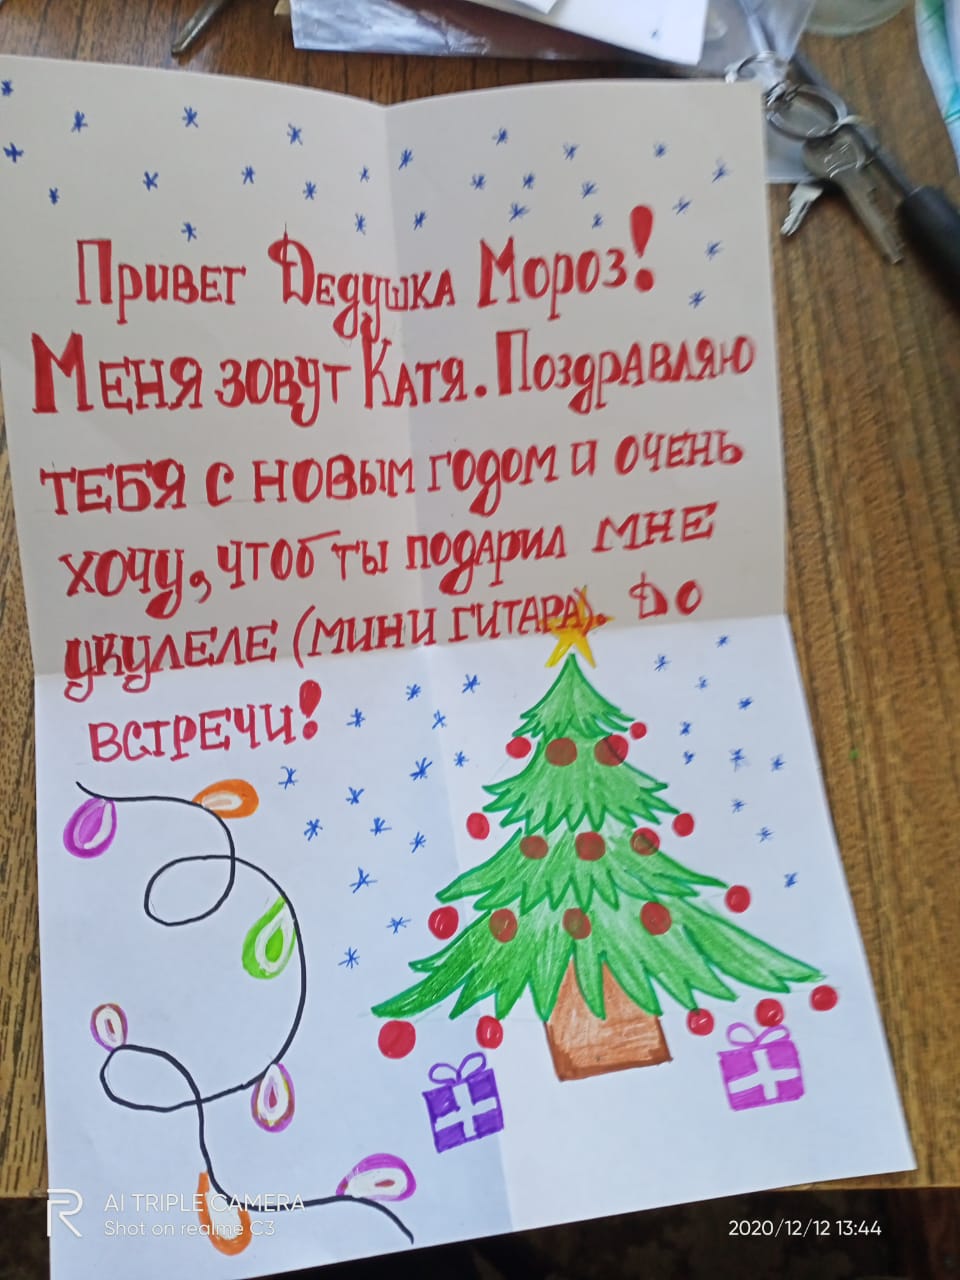 Привет Дедушка Мороз!
Меня зовут Катя. Поздравляю
тебя с новым годом и очень
хочу, чтоб ты подарил мне
укулеле (мини гитара). До
встречи!
AI TRIPLE CAMERA
Shot on realme C3
2020/12/12 13:44